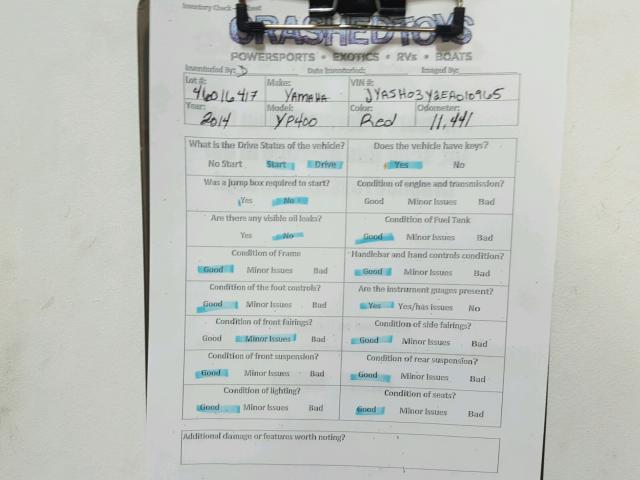 Inventory Check
CRASHEDTOYS
POWERSPORTS • EXOTICS • RVs • BOATS
Inventoried By: Date Inventoried: Imaged By:
Lot #: Make: VIN #:
46016417 YAMAHA JYASH03Y2EA010965
Year: Model: Color: Odometer:
2014 YP400 Red 11,441
What is the Drive Status of the vehicle? Does the vehicle have keys?
No Start Start Drive Yes No
Was a jump box required to start? Condition of engine and transmission?
Yes No Good Minor Issues Bad
Are there any visible oil leaks? Condition of Fuel Tank
Yes No Good Minor Issues Bad
Condition of Frame Handlebar and hand controls condition?
Good Minor Issues Bad Good Minor Issues Bad
Condition of the foot controls? Are the instrument guages present?
Good Minor Issues Bad Yes Yes/has issues No
Condition of front fairings? Condition of side fairings?
Good Minor Issues Bad Good Minor Issues Bad
Condition of front suspension? Condition of rear suspension?
Good Minor Issues Bad Good Minor Issues Bad
Condition of lighting? Condition of seats?
Good Minor Issues Bad Good Minor Issues Bad
Additional damage or features worth noting?